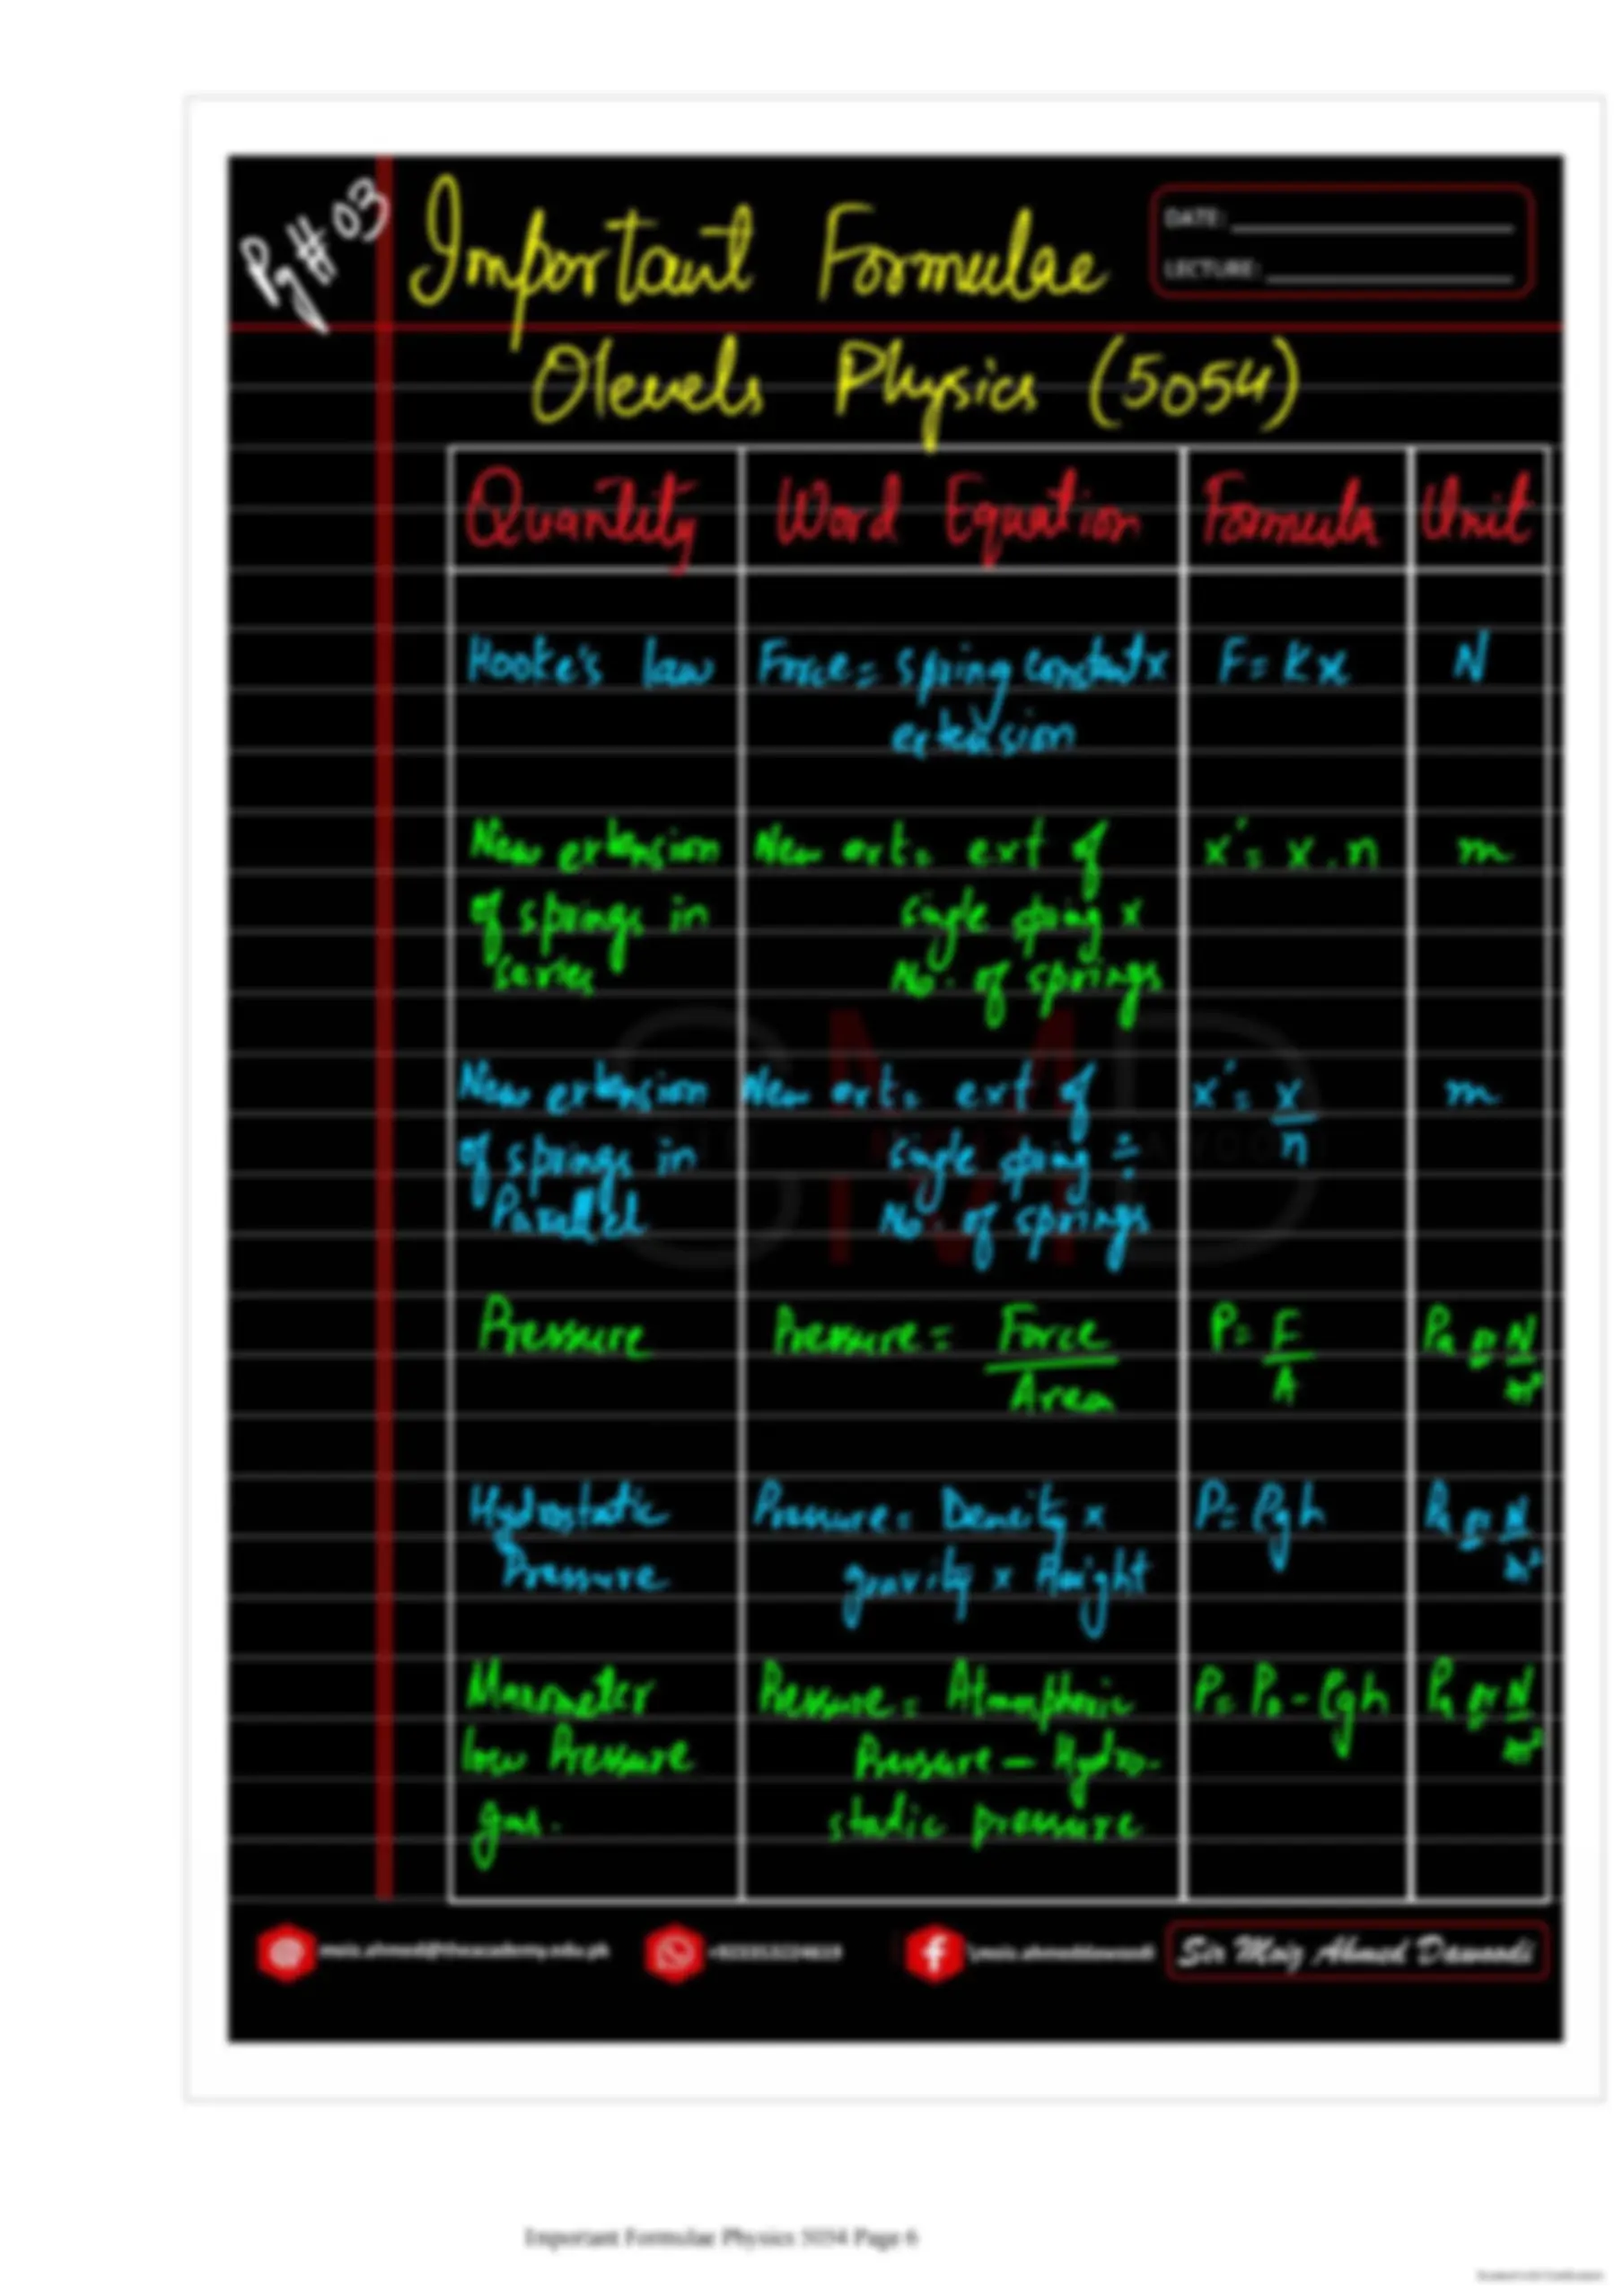 Pg # 03
Important Formulae
DATE:
LECTURE:
Olevels Physics (5054)
Quantity Word Equation Formula Unit
Hooke's law Force = spring constant x F = Kx N
extension
New extension New ext. = ext of x' = x . n m
of springs in single spring x
series No. of springs
New extension New ext. = ext of x' = x/n m
of springs in single spring ÷
Parallel No. of springs
Pressure Pressure = Force/Area P = F/A Pa or N/m²
Hydrostatic Pressure = Density x P = ρgh Pa or N/m²
Pressure gravity x Height
Manometer Pressure = Atmospheric P = P₀ - ρgh Pa or N/m²
low Pressure Pressure – Hydro-
gas. static pressure
moiz.ahmed@theacademy.edu.pk
Sir Moiz Ahmed Dawoodi
Important Formulae Physics 5054 Page 6